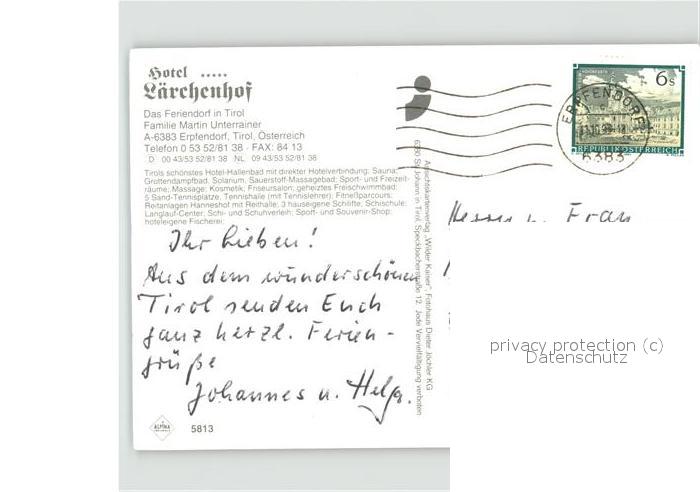 Hotel .....
Lärchenhof
Das Feriendorf in Tirol
Familie Martin Unterrainer
A-6383 Erpfendorf, Tirol, Österreich
Telefon 0 53 52/81 38 · FAX: 84 13
D 00 43/53 52/81 38 NL 09 43/53 52/81 38
Tirols schönstes Hotel-Hallenbad mit direkter Hotelverbindung; Sauna;
Grottendampfbad, Solarium, Sauerstoff-Massagebad; Sport- und Freizeit-
räume; Massage; Kosmetik; Friseursalon; geheiztes Freischwimmbad;
5 Sand-Tennisplätze, Tennishalle (mit Tennislehrer); Fitneßparcours;
Reitanlagen Hanneshof mit Reithalle; 3 hauseigene Schilifte; Schischule;
Langlauf-Center; Schi- und Schuhverleih; Sport- und Souvenir-Shop;
hoteleigene Fischerei;
Ihr Lieben!
Aus dem wunderschönen
Tirol senden Euch
ganz herzl. Ferien-
grüße
Johannes u. Helga.
ALPINA
5813
Ansichtskartenverlag „Wilder Kaiser“, Fotohaus Dieter Jöchler KG
6380 St. Johann in Tirol, Speckbacherstraße 12. Jede Vervielfältigung verboten
6 S
REPUBLIK ÖSTERREICH
ERPFENDORF
6383
Herrn u. Frau
privacy protection (c)
Datenschutz